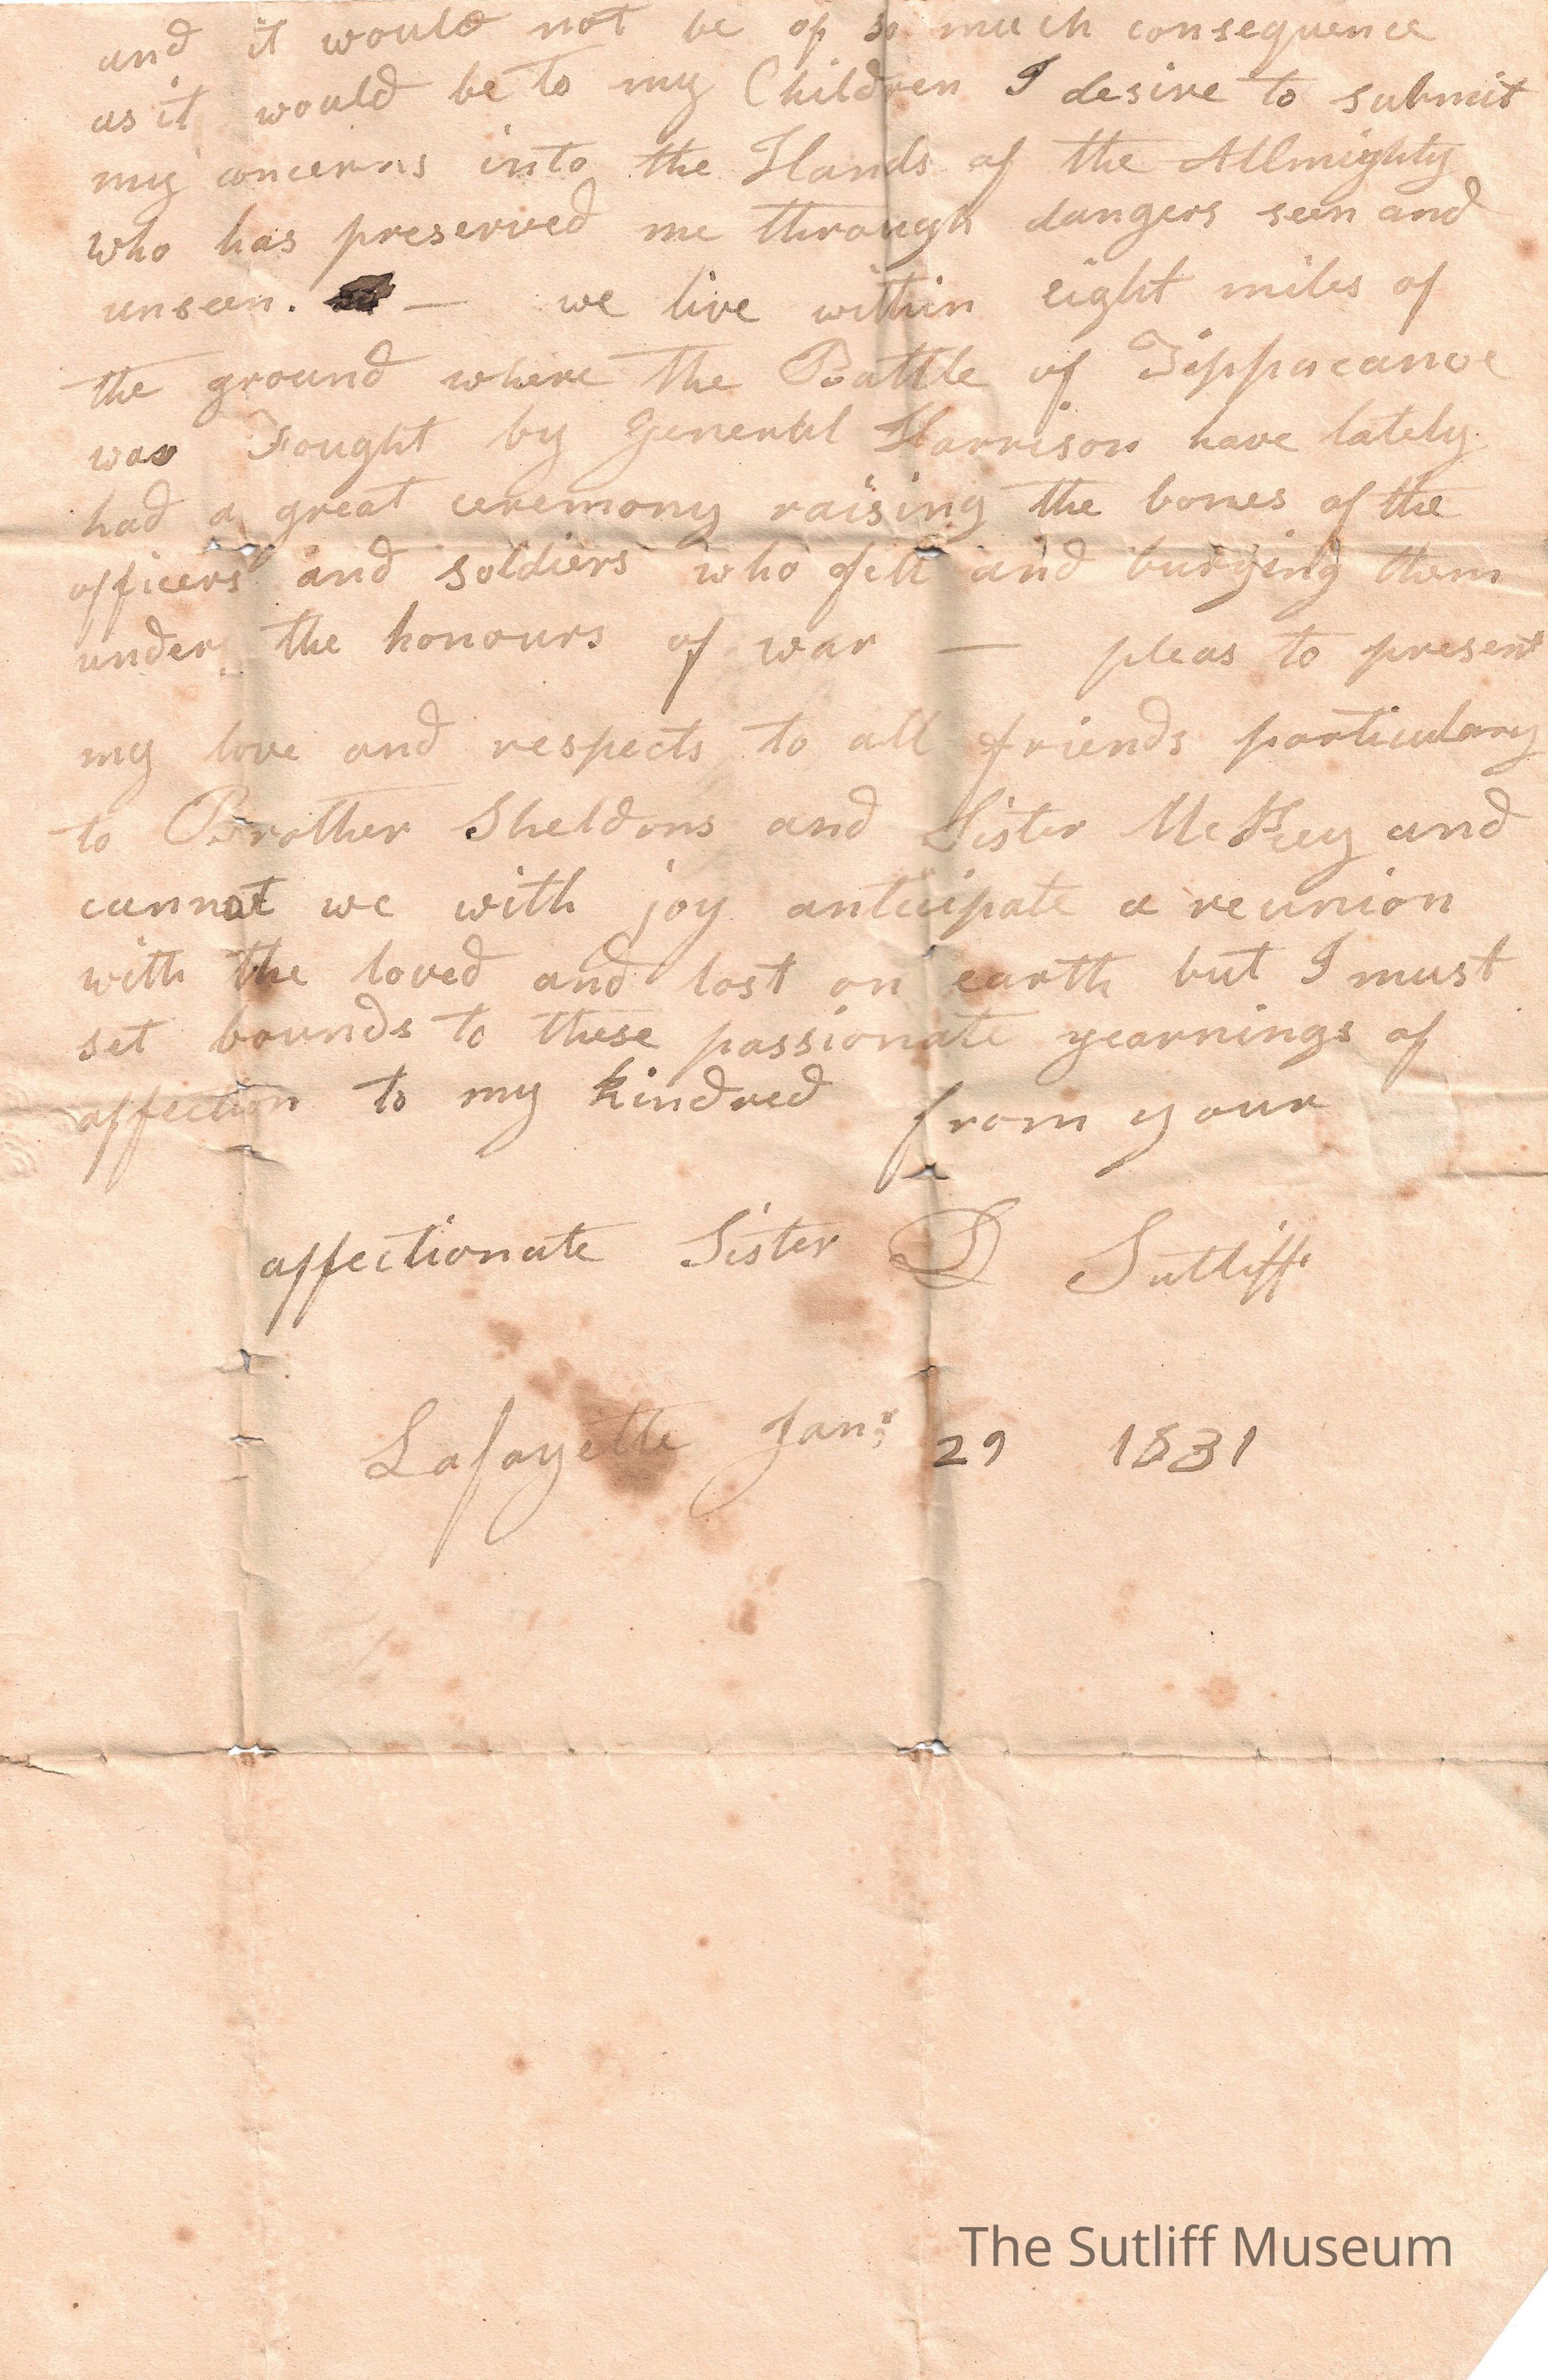 and it would not be of so much consequence
as it would be to my Children I desire to submit
my concerns into the Hands of the Allmighty
who has preserved me through dangers seen and
unseen. — we live within eight miles of
the ground where the Battle of Tippacanoe
was Fought by General Harrison have lately
had a great ceremony raising the bones of the
officers and soldiers who fell and burying them
under the honours of war — pleas to present
my love and respects to all friends particulary
to Brother Sheldons and Sister McKey and
cannot we with joy anticipate a reunion
with the loved and lost on earth but I must
set bounds to these passionate yearnings of
affection to my kindred from your
affectionate Sister D Sutliff
Lafayette Janr 29 1831
The Sutliff Museum